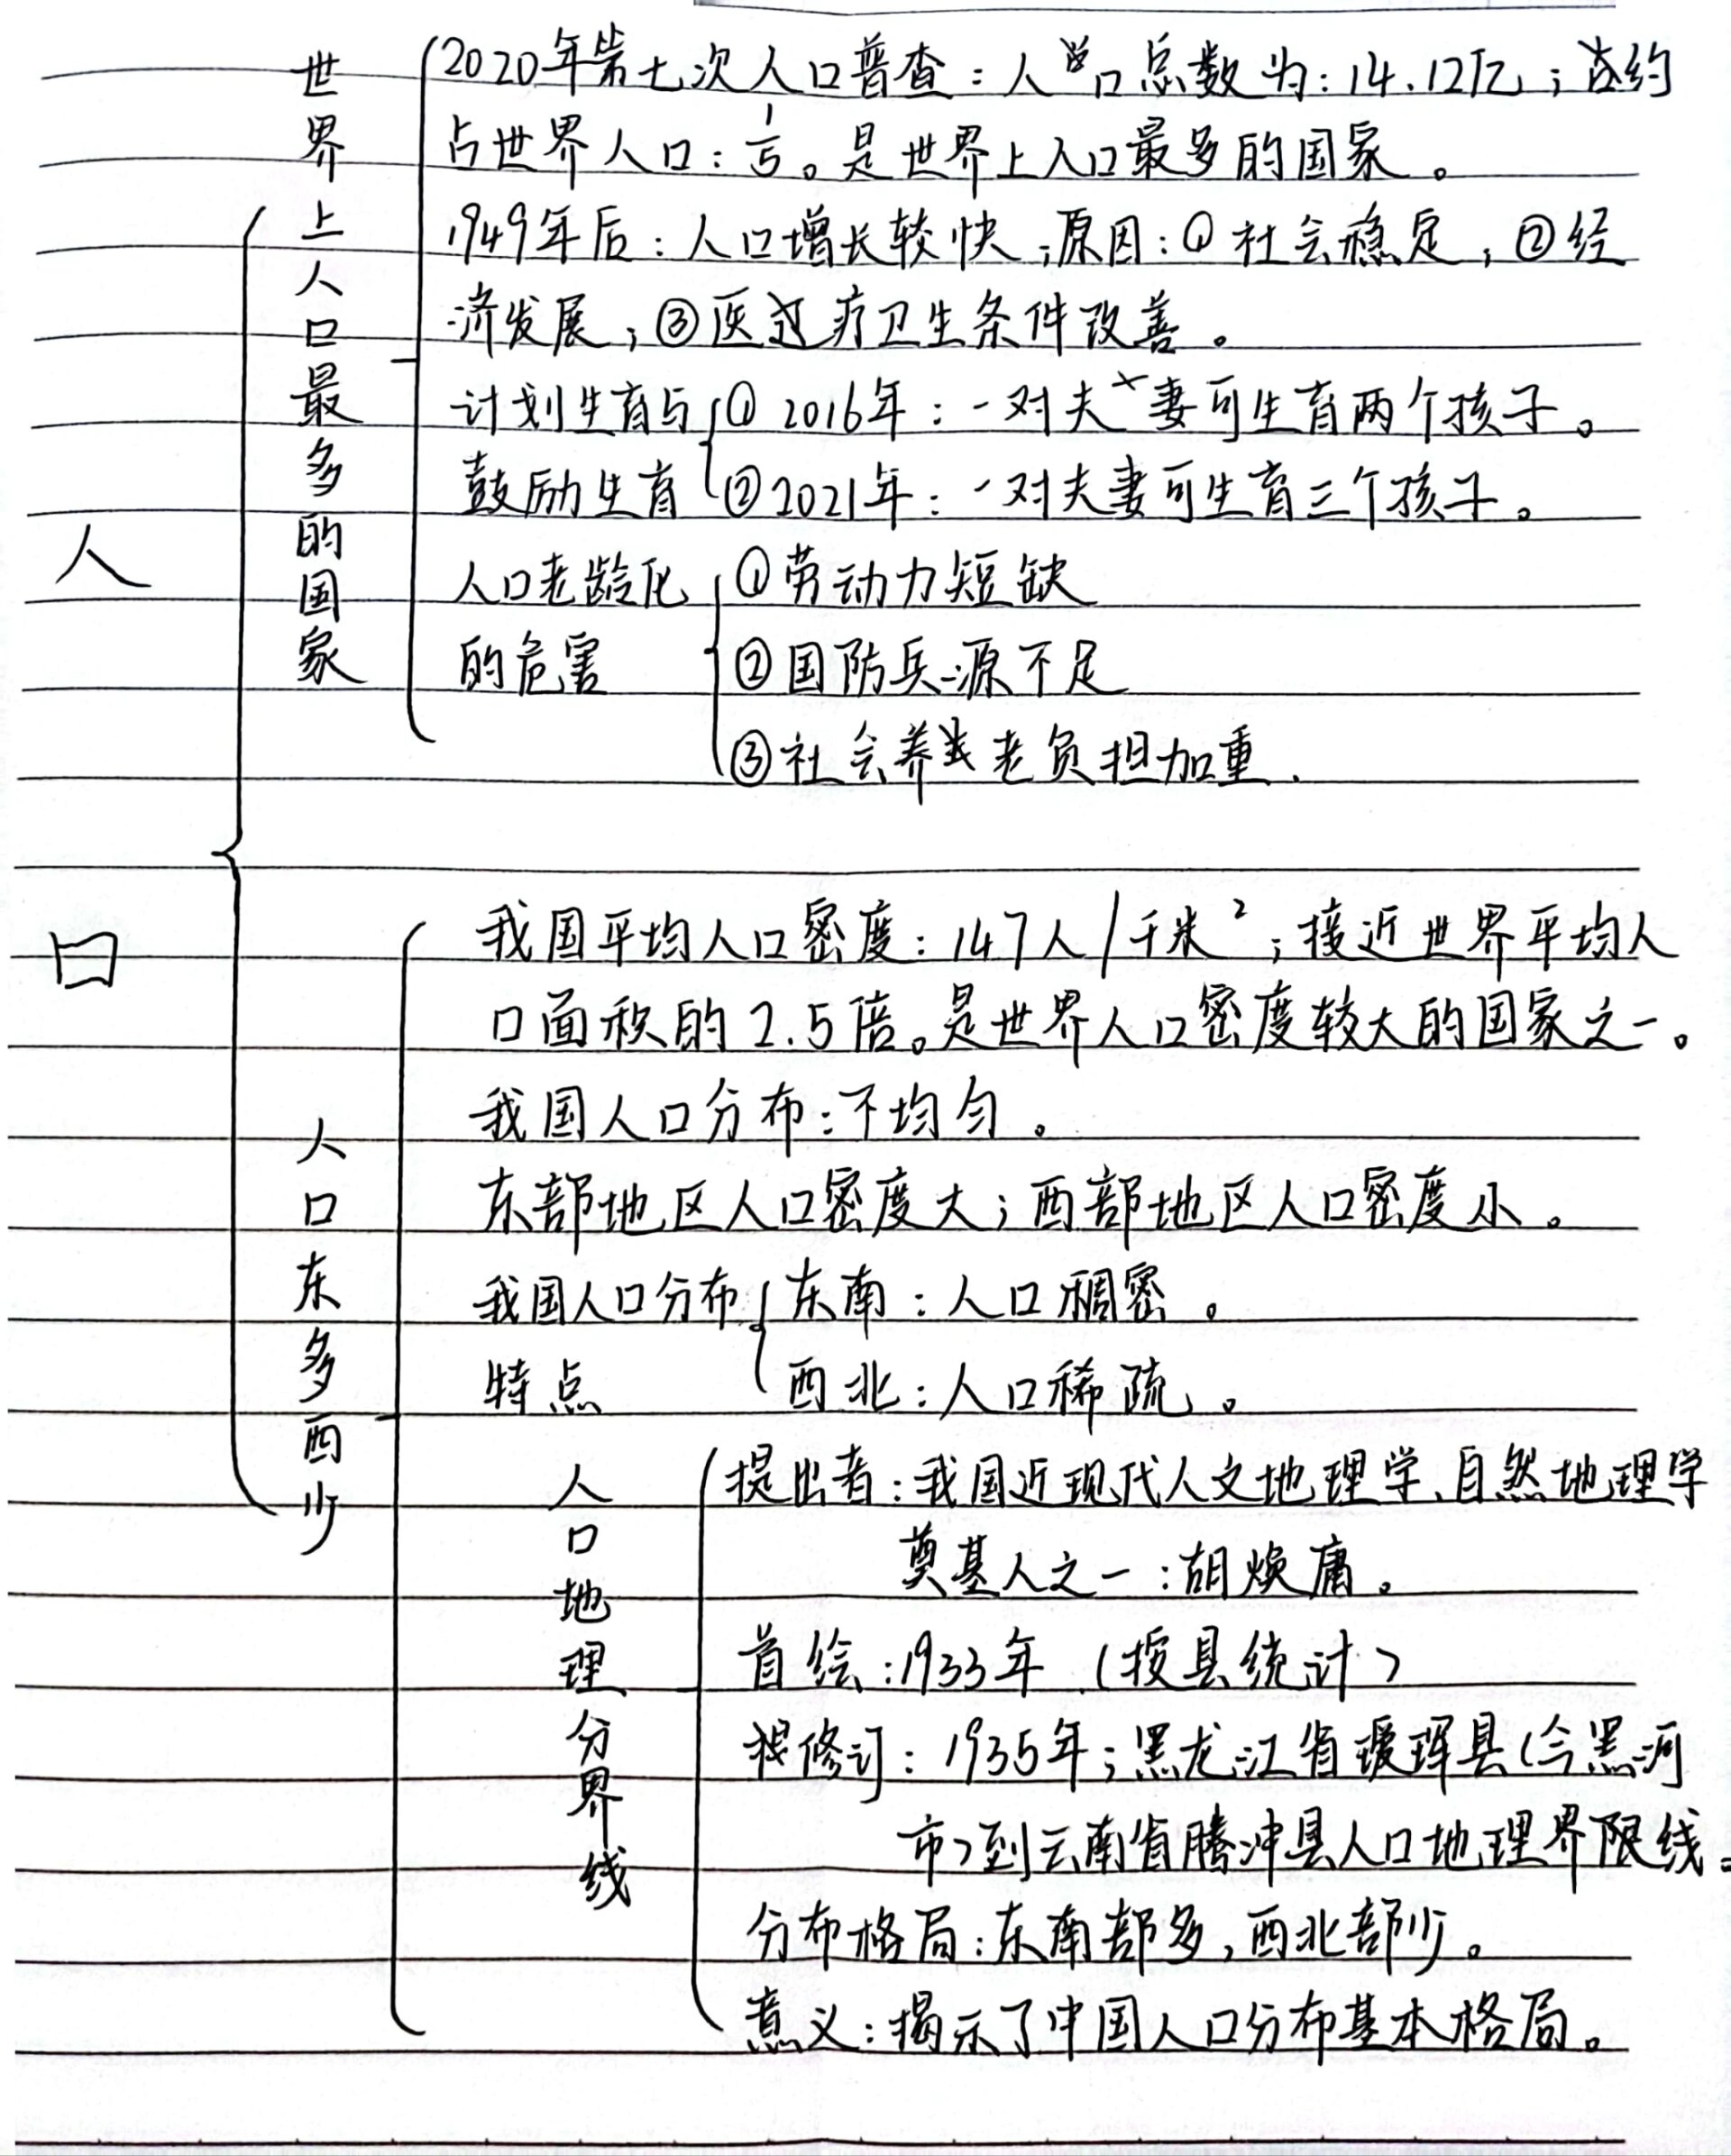 人口
世界上人口最多的国家
2020年第七次人口普查：人口总数为：14.12亿；约
占世界人口：1/5。是世界上人口最多的国家。
1949年后：人口增长较快；原因：①社会稳定；②经
济发展；③医疗卫生条件改善。
计划生育与
鼓励生育
①2016年：一对夫妻可生育两个孩子。
②2021年：一对夫妻可生育三个孩子。
人口老龄化
的危害
①劳动力短缺
②国防兵源不足
③社会养老负担加重.
人口东多西少
我国平均人口密度：147人/千米²；接近世界平均人
口面积的2.5倍。是世界人口密度较大的国家之一。
我国人口分布：不均匀。
东部地区人口密度大；西部地区人口密度小。
我国人口分布
特点
东南：人口稠密。
西北：人口稀疏。
人口地理分界线
提出者：我国近现代人文地理学、自然地理学
奠基人之一：胡焕庸。
首绘：1933年（按县统计）
修订：1935年；黑龙江省瑷珲县（今黑河
市）到云南省腾冲县人口地理界限线。
分布格局：东南部多，西北部少。
意义：揭示了中国人口分布基本格局。